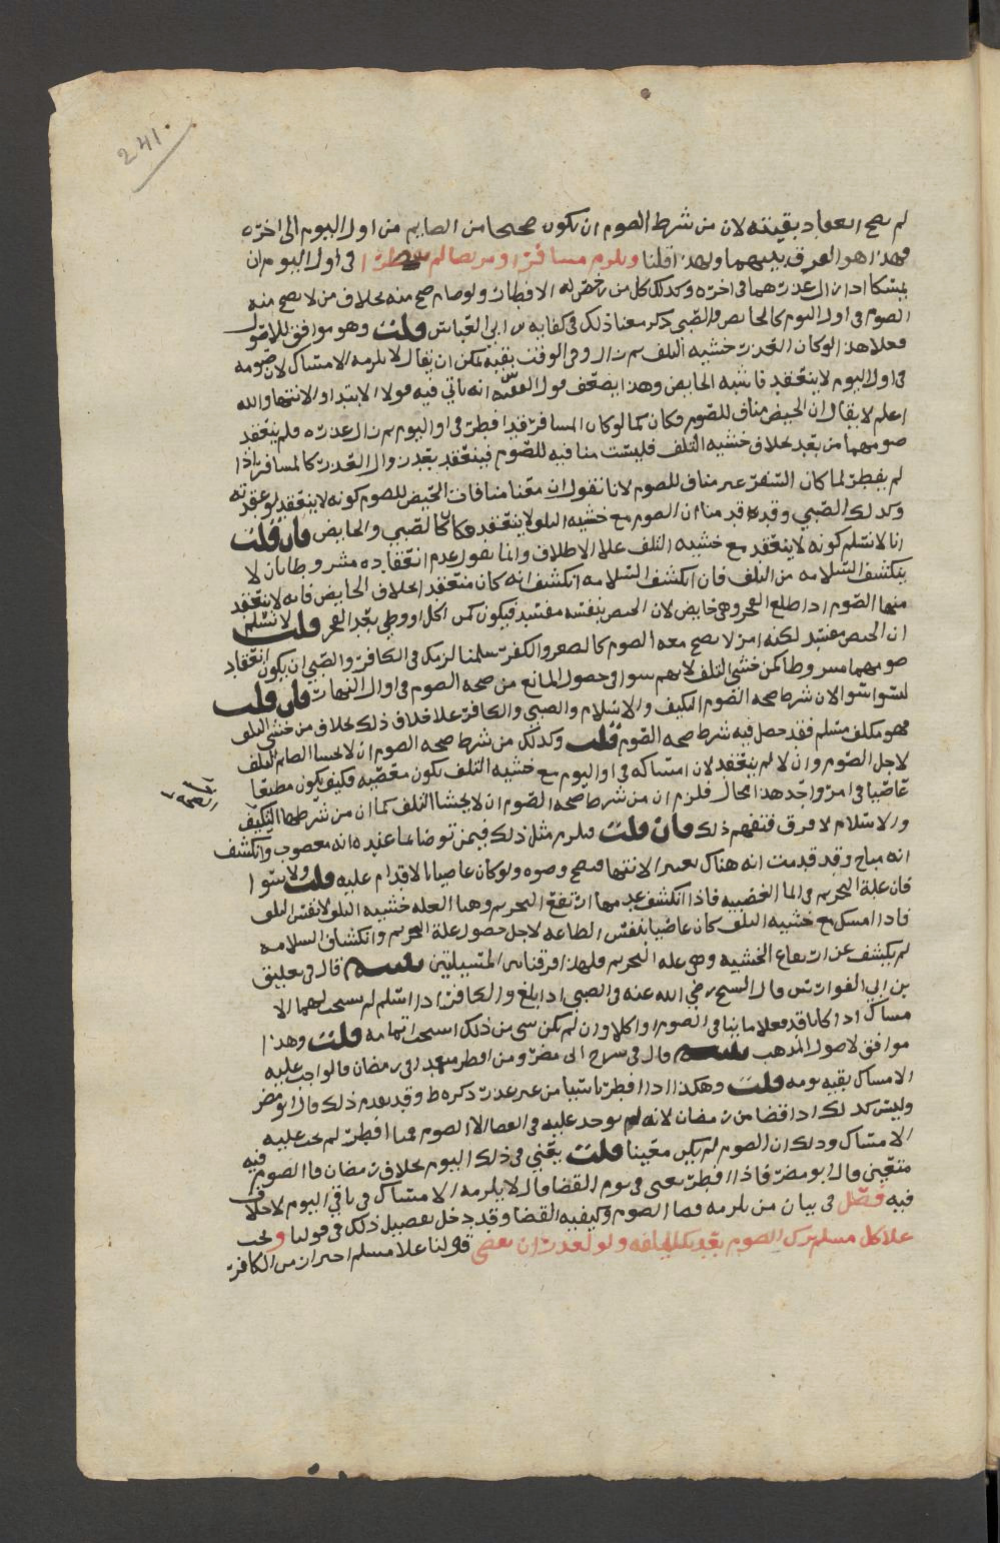 241
لم يصح انعقاد بقيته لان من شرط الصوم ان يكون صحيحا من الصايم من اول اليوم الى اخره
فهذا هو الفرق بينهما ولهذا قلنا ويلزم مسافرا ومريضا لم يفطرا في اول اليوم ان
يمسكا اذا زال عذرهما في اخره وكذلك كل من رخص له الافطار ولو صام صح منه بخلاف من لا يصح منه
الصوم في اول اليوم كالحايض والصبي ذكر معنا ذلك في كفاية بن ابي العباس قلت وهو موافق للاصول
فعلا هذا لو كان العذر خشية التلف ثم زال وفي الوقت بقية يمكن ان يقال لا يلزمه الامساك لان صومه
في اول اليوم لا ينعقد فاشبه الحايض وهذا يضعف قول الفقيه انه ياتي فيه قولا الابتدا والانتها والله
اعلم لا يقال ان الحيض مناف للصوم فكان كما لو كان المسافر قد افطر في اول اليوم ثم زال عذره فلم ينعقد
صومهما من بعد بخلاف خشية التلف فليست منافية للصوم فينعقد بعد زوال العذر كالمسافر اذا
لم يفطر لما كان السفر غير مناف للصوم لانا نقول ان معنا منافات الحيض للصوم كونه لا ينعقد لو عقدته
وكذلك الصبي وقد قدمنا ان الصوم مع خشية التلف لا ينعقد فكان كالصبي والحايض فان قلت
انا لا نسلم كونه لا ينعقد مع خشية التلف على الاطلاق وانما نقول عدم انعقاده مشروط بان لا
ينكشف السلامة من التلف فان انكشف السلامة انكشف انه كان منعقدا بخلاف الحايض فانه لا ينعقد
منها الصوم اذا طلع الفجر وهي حايض لان الحيض بنفسه مفسد فيكون كمن اكل او وطي بعد الفجر قلت لا نسلم
ان الحيض مفسد لكنه امر لا يصح معه الصوم كالصغر والكفر سلمنا لزمك في الكافر والصبي ان يكون انعقاد
صومهما مشروطا كمن خشي التلف لانهم سوا في حصول المانع من صحة الصوم في اول النهار فان قلت
ليسوا سوا لان شرط صحة الصوم التكليف والاسلام والصبي والكافر على خلاف ذلك بخلاف من خشي التلف
فهو مكلف مسلم فقد حصل فيه شرط صحة الصوم قلت وكذلك من شرط صحة الصوم ان لا يخشا الصايم التلف
لاجل الصوم وان لا لم ينعقد لان امساكه في اول اليوم مع خشية التلف يكون معصية فكيف يكون مطيعا
عاصيا في امر واحد هذا محال فلزم ان من شرط صحة الصوم ان لا يخشا التلف كما ان من شرطها التكليف
والاسلام لا فرق فتفهم ذلك فان قلت فيلزم مثل ذلك فيمن توضا بما عنده انه مغصوب وانكشف
انه مباح وقد قدمت انه هناك يعتبر الانتها فيصح وضوه ولو كان عاصيا بالاقدام عليه قلت ولا سوا
فان علة التحريم في الما الغصبية فاذا انكشف عدمها ارتفع التحريم وهنا العلة خشية التلف لا نفس التلف
فاذا امسك مع خشية التلف كان عاصيا بنفس الطاعة لاجل حصول علة التحريم وانكشاف السلامة
لم يكشف عن ارتفاع الخشية وهي علة التحريم فلهذا فرقنا بين المسيلتين تنبيه قال في تعليق
بن ابي الفوارس قال السيح رضي الله عنه والصبي اذا بلغ والكافر اذا اسلم لم يستحب لهما الا
مساك اذا كانا قد فعلا ما ينافي الصوم او اكلا وان لم يكن شي من ذلك استحب اتمامه قلت وهذا
موافق لاصول المذهب تنبيه قال في شرح ابي مضر ومن افطر متعمدا في رمضان فالواجب عليه
الامساك بقية يومه قلت وهكذا اذا افطر ناسيا من غير عذر ذكره ط وقد تقدم ذلك قال ابو مضر
وليس كذلك اذا قضا من رمضان لانه لم يوجد عليه في القضا الا الصوم فمتا افطر لم يجب عليه
الامساك وذلك ان الصوم لم يكن معينا قلت يعني في ذلك اليوم بخلاف رمضان فالصوم فيه
متعين قال ابو مضر فاذا افطر يعني في يوم القضا قال لا يلزمه الامساك في باقي اليوم لا خلاف
فيه فصل في بيان من يلزمه قضا الصوم وكيفية القضا وقد دخل تفصيل ذلك في قولنا ويجب
على كل مسلم ترك الصوم بعد تكليفه ولو لعذر ان يقضي قولنا على مسلم احتراز من الكافر